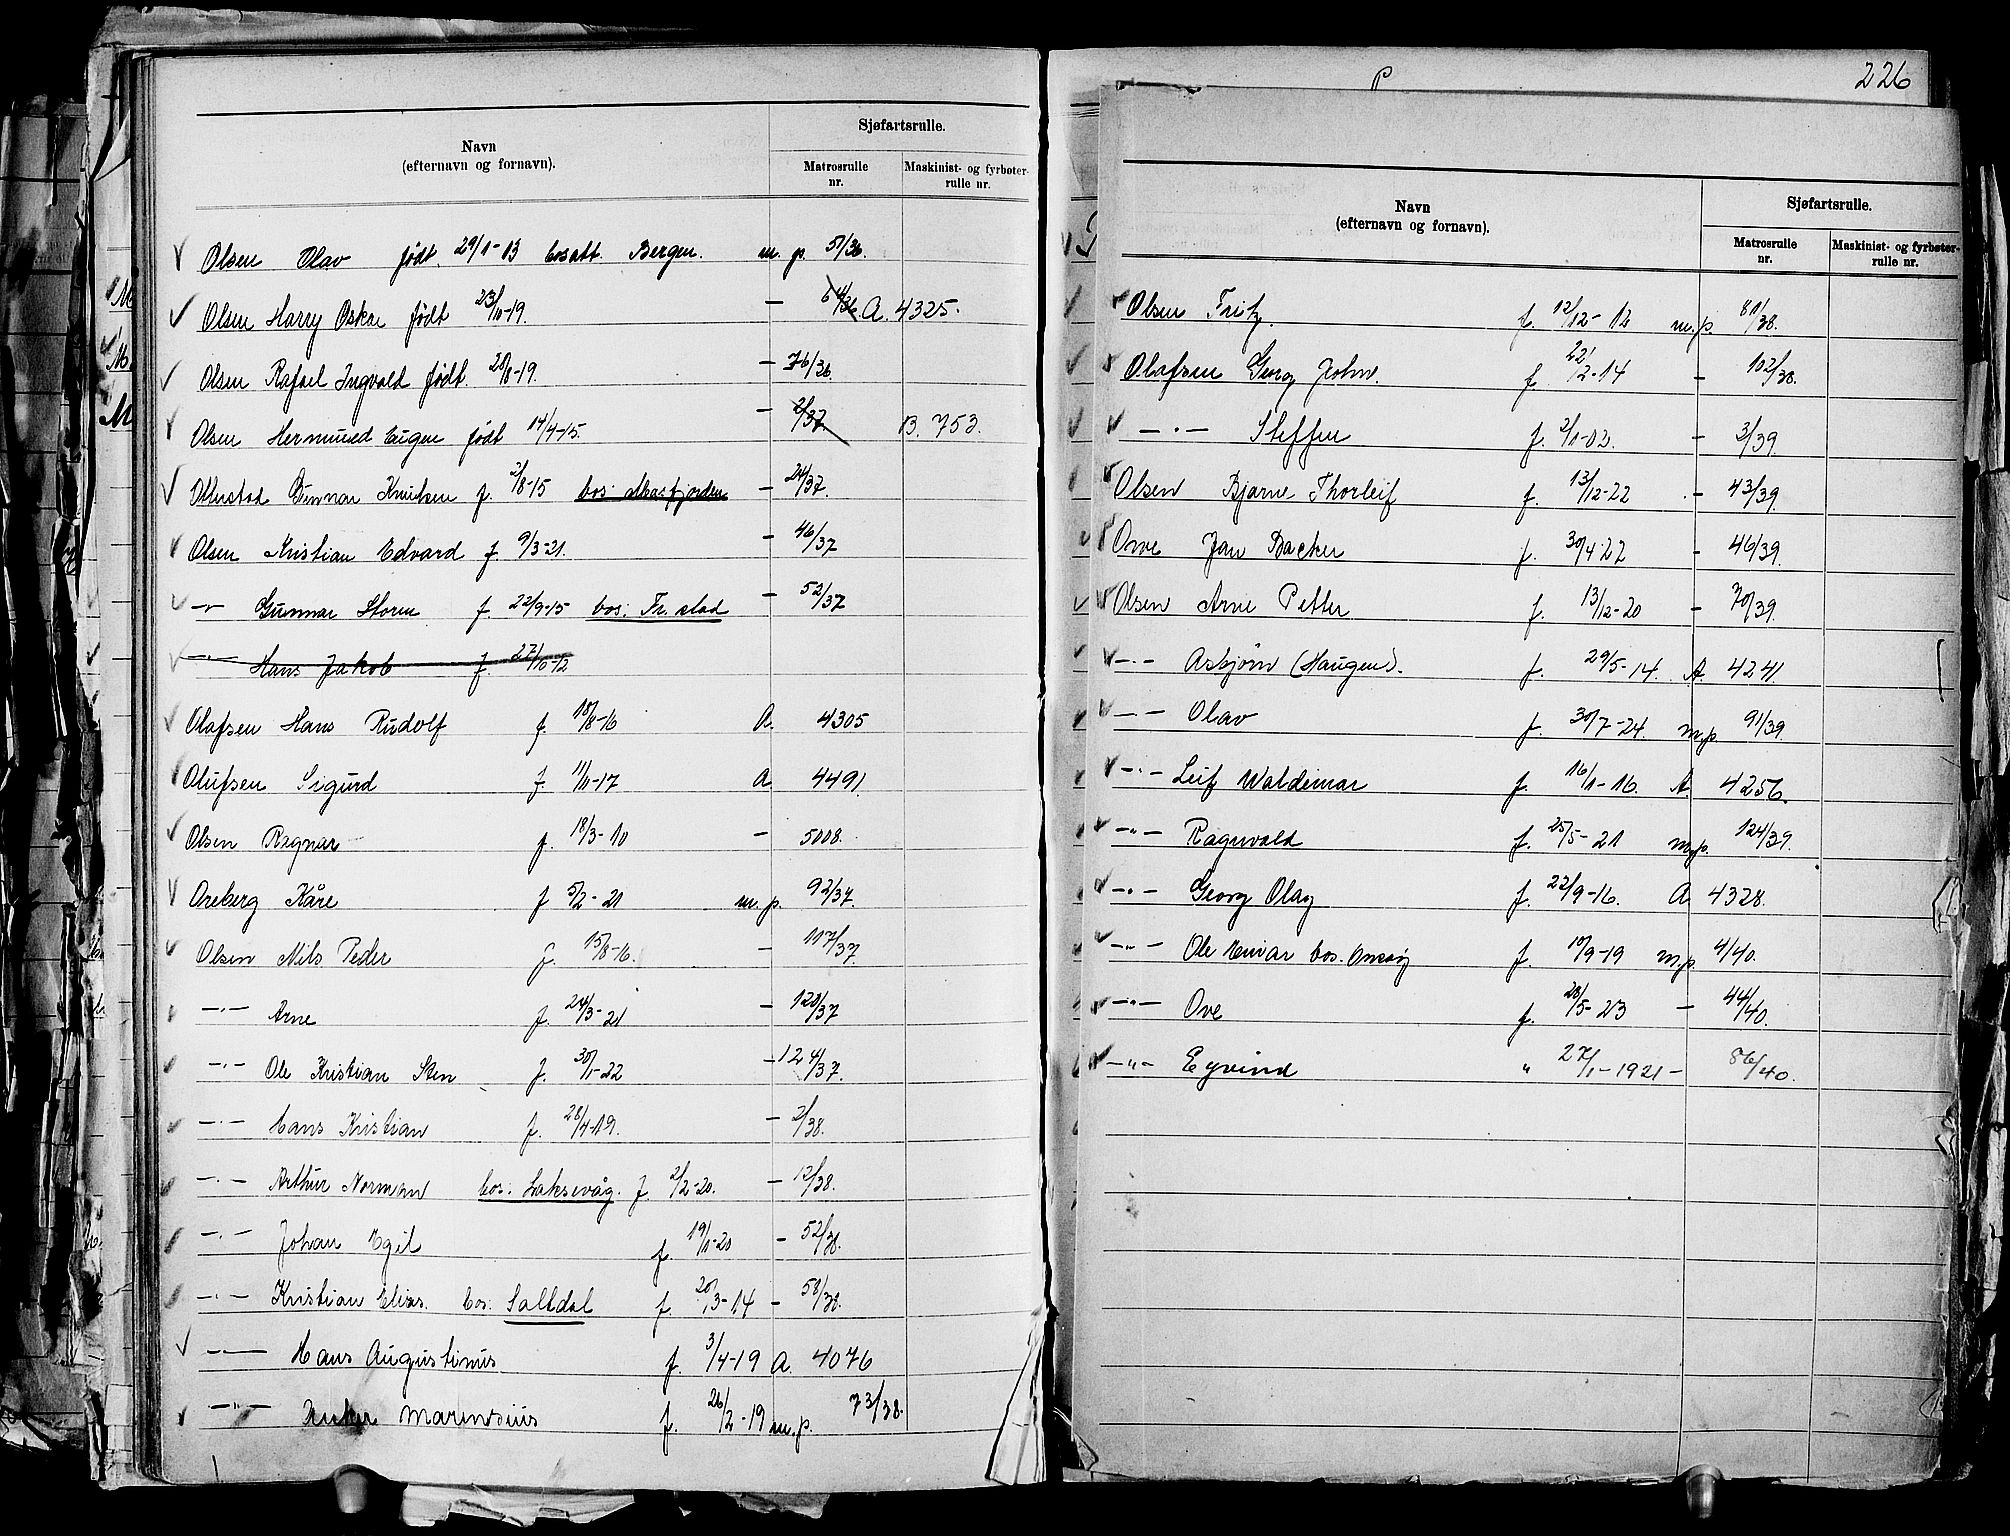 Sjøfartsrulle.
Navn
(efternavn og fornavn).
Matrosrulle
nr.
Maskinist- og fyrbøter-
rulle nr.
Olsen Olav født 29/1-13 bosatt Bergen. m. p. 51/36.
Olsen Harry Oskar født 23/11-19. — 64/36. A. 4325.
Olsen Rafael Ingvald født 28/8-19. — 76/36.
Olsen Hermund Eugen født 14/4-15. — 2/37. B. 753.
Gunnar Knutsen f. 2/8-15 bos: — 24/37.
Olsen Kristian Edvard f 9/3-21. — 46/37
—"— Gunnar Storm f. 22/9-15 bos: Fr.stad — 52/37
—"— Hans Jakob f. 27/10-12
Olafsen Hans Rudolf f. 18/8-16 A. 4305
Olufsen Sigurd f. 11/11-17 A 4491
Olsen Ragnar f. 18/3-10 — 5008.
Oreberg Kåre f 5/2-21 m. p. 92/37.
Olsen Nils Peder f. 15/8-16. — 117/37.
—"— Arne f. 24/3-21 — 120/37
—"— Ole Kristian Sten f. 30/1-22 — 124/37.
—"— Hans Kristian f. 28/4-19. — 2/38.
—"— Arthur Norman bos: Laksevåg. f. 2/2-20. — 12/38.
—"— Johan Egil f. 19/11-20 — 52/38.
—"— Kristian Elias. bos: Saltdal f. 20/3-14 — 58/38.
—"— Hans Augustinus f. 3/4-19 A 4076
—"— Marensius f. 26/2-19 m.p. 73/38.
P
226
Sjøfartsrulle.
Navn
(efternavn og fornavn).
Matrosrulle
nr.
Maskinist- og fyrbøter-
rulle nr.
Olsen Fritz. f. 12/12-12 m.p. 81/38.
Olafsen Georg John. f. 22/2-14 — 102/38.
—"— Steffen f. 2/1-02. — 3/39
Olsen Bjarne Thorleif f. 13/12-22 — 43/39.
Jan Backer f. 30/4-22 — 46/39.
Olsen Arne Petter f. 13/12-20 — 70/39.
—"— Asbjørn (Haugen). f. 29/5-14. A. 4241
—"— Olav f. 30/7-24. m.p. 91/39.
—"— Leif Waldemar f. 16/1-16. A. 4256.
—"— Ragnvald f. 25/5-21 m.p. 124/39.
—"— Georg Olaf f. 22/9-16. A 4328.
—"— Ole Einar bos. Onsøy f. 10/9-19 m.p. 4/40.
—"— Ove f. 28/5-23 — 44/40.
—"— Eyvind " 27/1-1921 — 86/40.